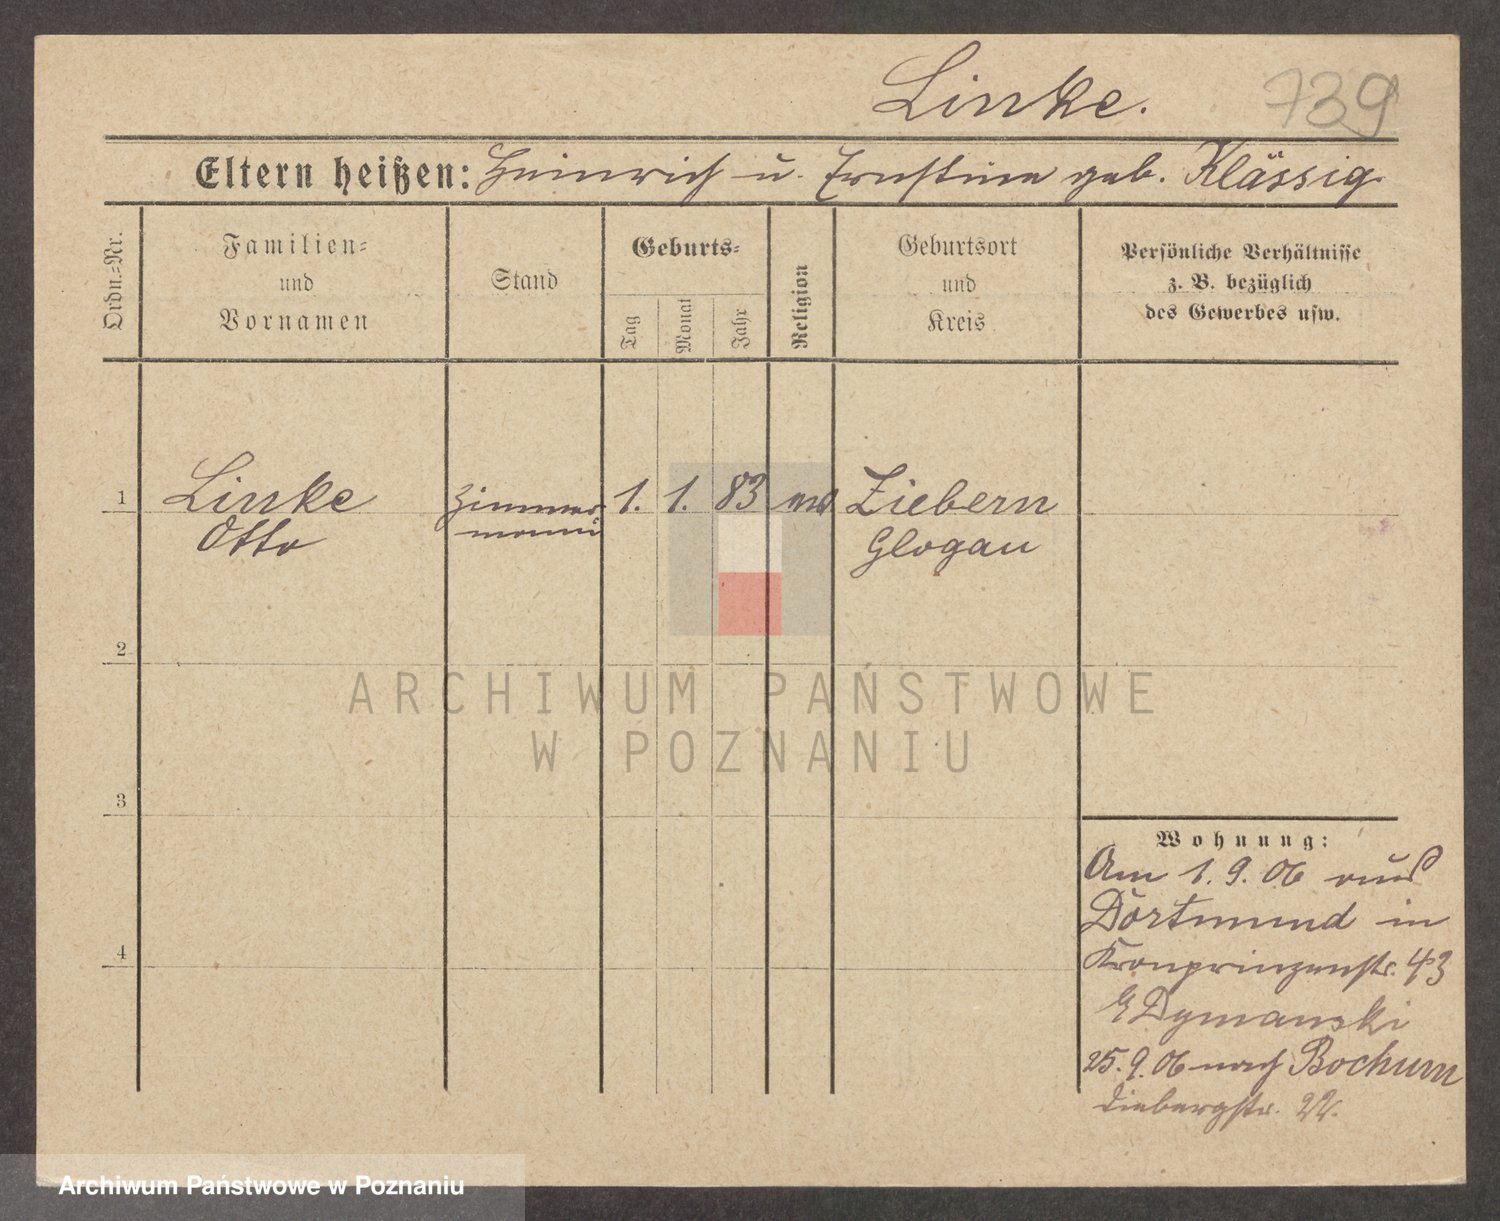 Linke. 739
Eltern heißen: Heinrich u. Ernstine geb. Klässig.
Ordn.=Nr.
Familien=
und
Vornamen
Stand
Geburts=
Tag
Monat
Jahr
Religion
Geburtsort
und
Kreis
Persönliche Verhältnisse
z. B. bezüglich
des Gewerbes usw.
1 Linke Zimmer 1. 1. 83 Ziebern
Otto mann Glogau
2
3
4
ARCHIWUM PAŃSTWOWE
W POZNANIU
Wohnung:
Am 1. 9. 06 aus
Dortmund in
Kronprinzenstr. 43
Dymanski
25. 9. 06 nach Bochum
Archiwum Państwowe w Poznaniu